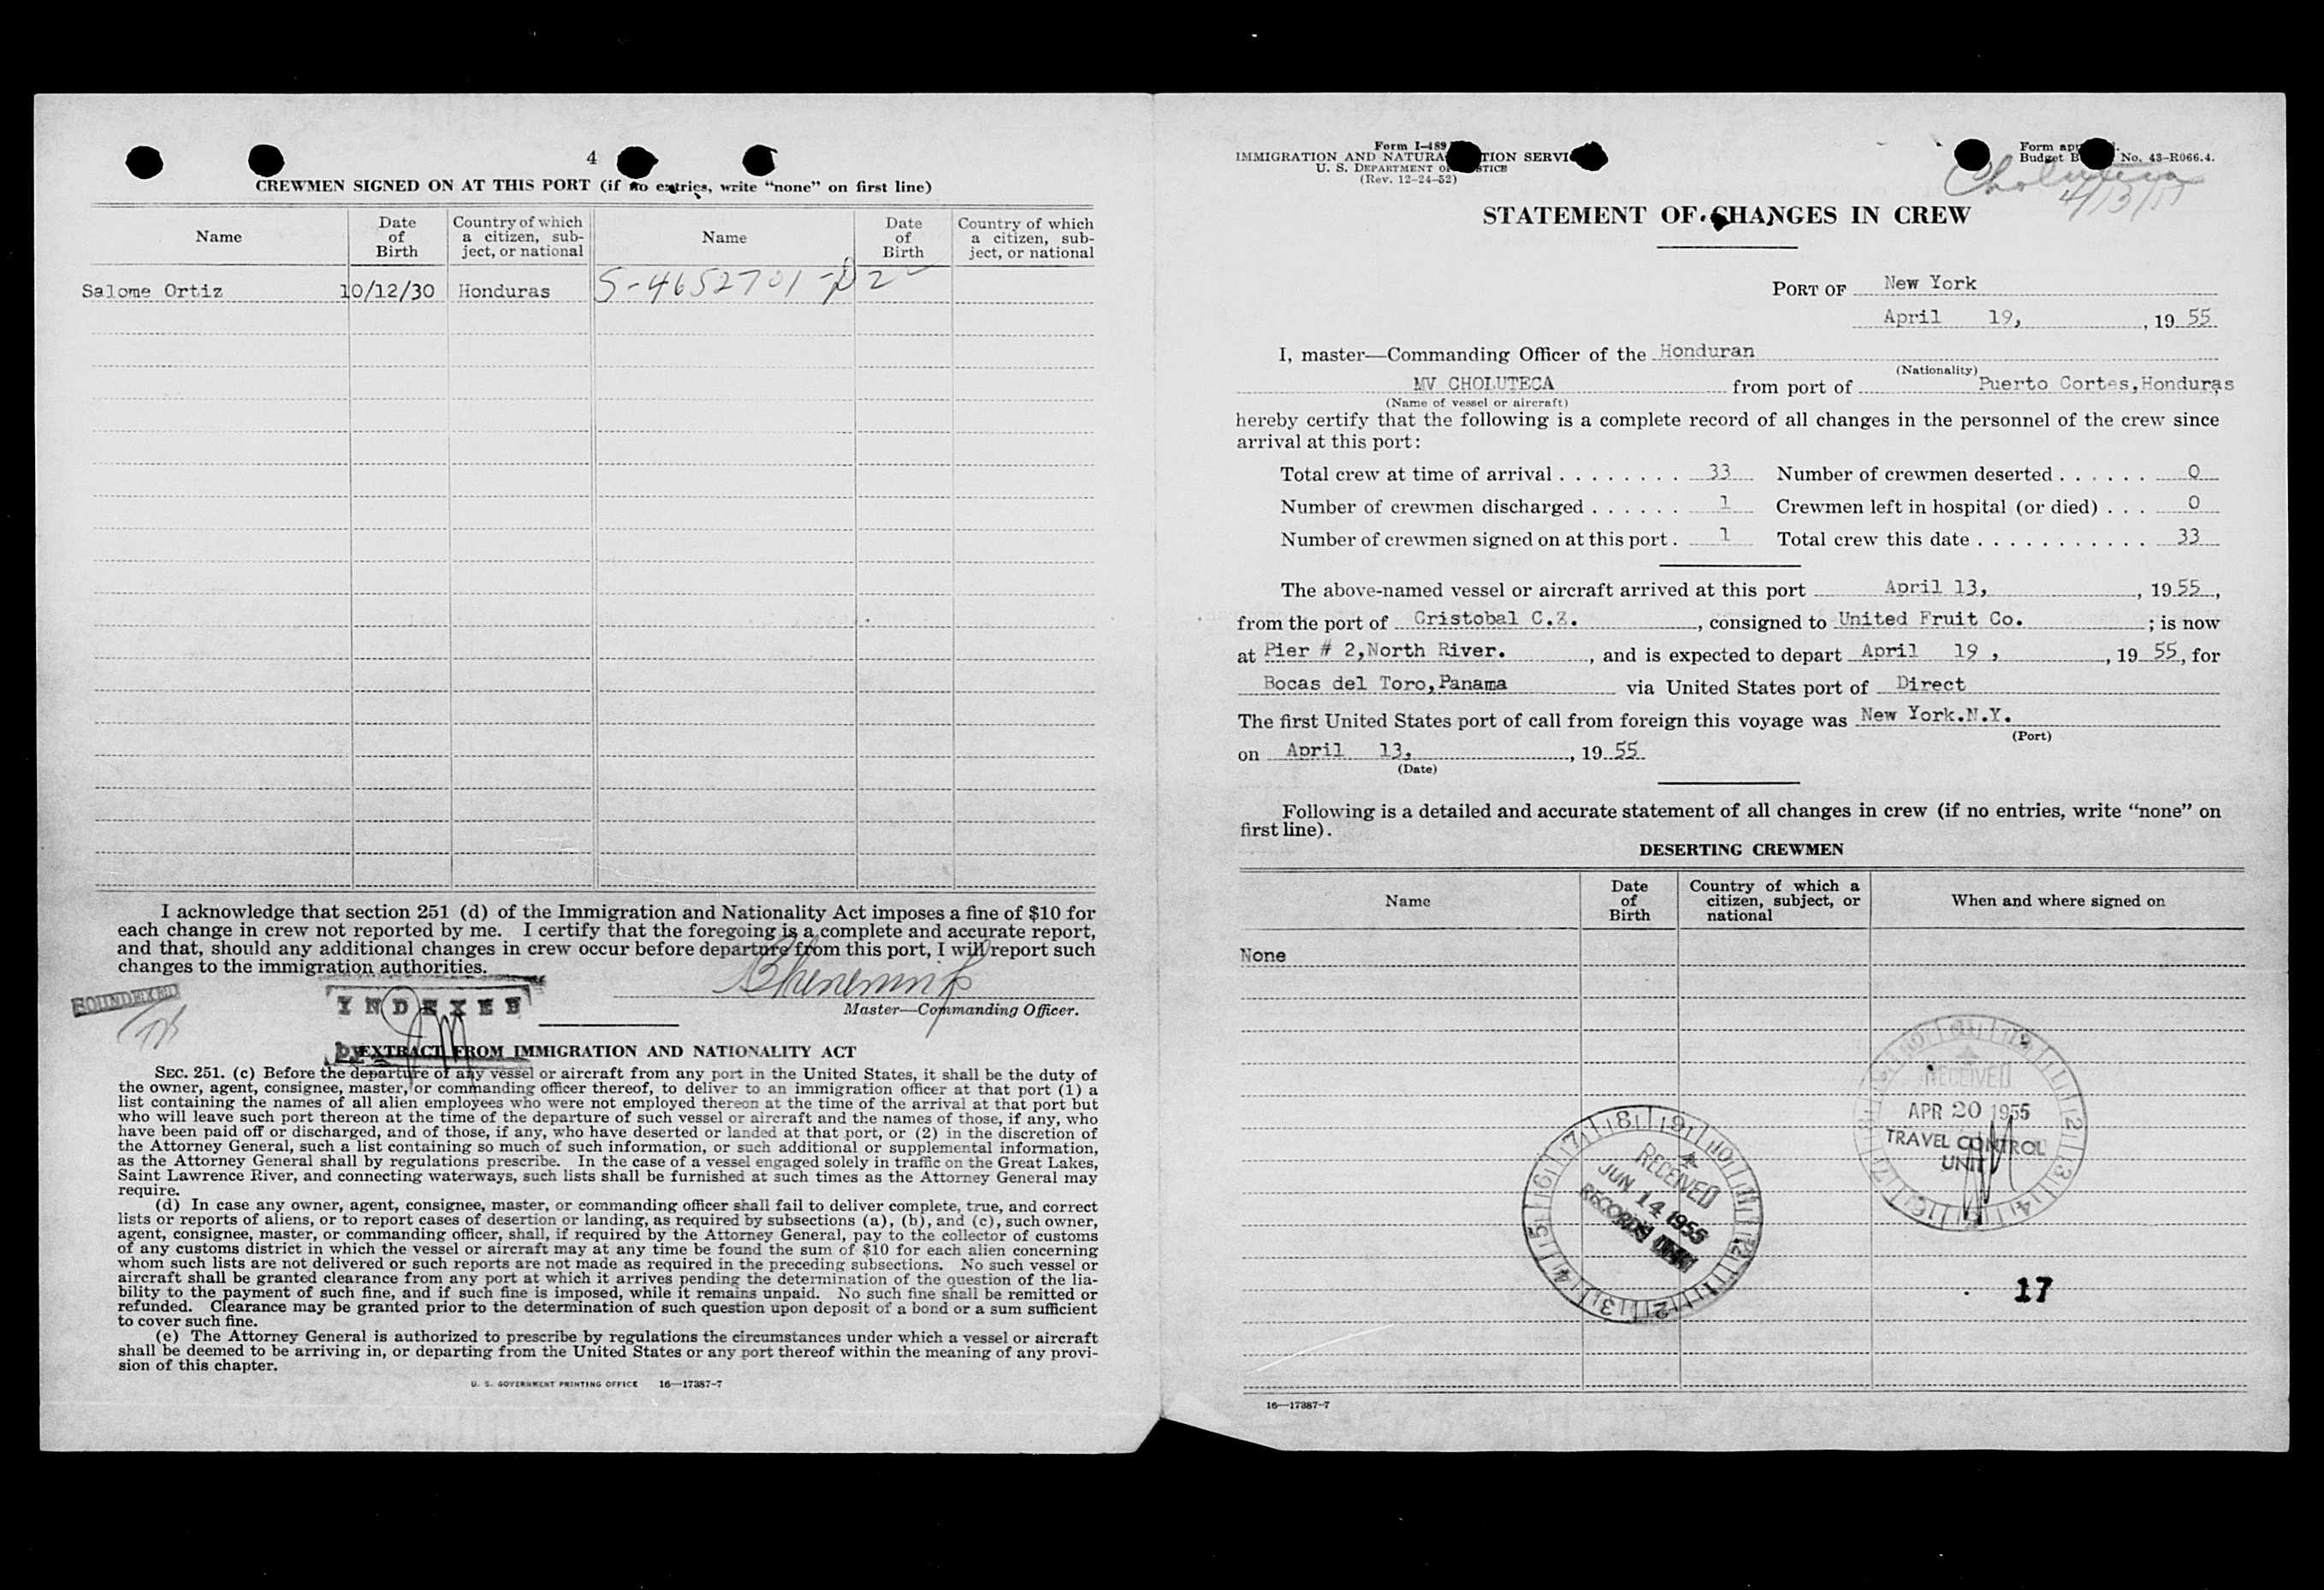 4
CREWMEN SIGNED ON AT THIS PORT (if no entries, write “none” on first line)
Name Date of Birth Country of which a citizen, sub-ject, or national Name Date of Birth Country of which a citizen, sub-ject, or national
Salome Ortiz 10/12/30 Honduras S-4652701-D2
I acknowledge that section 251 (d) of the Immigration and Nationality Act imposes a fine of $10 for
each change in crew not reported by me. I certify that the foregoing is a complete and accurate report,
and that, should any additional changes in crew occur before departure from this port, I will report such
changes to the immigration authorities.
SOUNDEXED
INDEXED
Master—Commanding Officer.
by
EXTRACT FROM IMMIGRATION AND NATIONALITY ACT
SEC. 251. (c) Before the departure of any vessel or aircraft from any port in the United States, it shall be the duty of
the owner, agent, consignee, master, or commanding officer thereof, to deliver to an immigration officer at that port (1) a
list containing the names of all alien employees who were not employed thereon at the time of the arrival at that port but
who will leave such port thereon at the time of the departure of such vessel or aircraft and the names of those, if any, who
have been paid off or discharged, and of those, if any, who have deserted or landed at that port, or (2) in the discretion of
the Attorney General, such a list containing so much of such information, or such additional or supplemental information,
as the Attorney General shall by regulations prescribe. In the case of a vessel engaged solely in traffic on the Great Lakes,
Saint Lawrence River, and connecting waterways, such lists shall be furnished at such times as the Attorney General may
require.
(d) In case any owner, agent, consignee, master, or commanding officer shall fail to deliver complete, true, and correct
lists or reports of aliens, or to report cases of desertion or landing, as required by subsections (a), (b), and (c), such owner,
agent, consignee, master, or commanding officer, shall, if required by the Attorney General, pay to the collector of customs
of any customs district in which the vessel or aircraft may at any time be found the sum of $10 for each alien concerning
whom such lists are not delivered or such reports are not made as required in the preceding subsections. No such vessel or
aircraft shall be granted clearance from any port at which it arrives pending the determination of the question of the lia-
bility to the payment of such fine, and if such fine is imposed, while it remains unpaid. No such fine shall be remitted or
refunded. Clearance may be granted prior to the determination of such question upon deposit of a bond or a sum sufficient
to cover such fine.
(e) The Attorney General is authorized to prescribe by regulations the circumstances under which a vessel or aircraft
shall be deemed to be arriving in, or departing from the United States or any port thereof within the meaning of any provi-
sion of this chapter.
U. S. GOVERNMENT PRINTING OFFICE 16—17387-7
Form I-489
IMMIGRATION AND NATURA TION SERVI
U. S. DEPARTMENT OF STICE
(Rev. 12-24-52)
Form app
Budget B No. 43-R066.4.
Choluteca
4/13/55
STATEMENT OF CHANGES IN CREW
PORT OF New York
April 19, , 19 55
I, master—Commanding Officer of the Honduran
(Nationality)
MV CHOLUTECA from port of Puerto Cortes,Honduras,
(Name of vessel or aircraft)
hereby certify that the following is a complete record of all changes in the personnel of the crew since
arrival at this port:
Total crew at time of arrival . . . . . . . . 33 Number of crewmen deserted . . . . . . 0
Number of crewmen discharged . . . . . . 1 Crewmen left in hospital (or died) . . . 0
Number of crewmen signed on at this port . 1 Total crew this date . . . . . . . . . . . 33
The above-named vessel or aircraft arrived at this port April 13, , 19 55 ,
from the port of Cristobal C.Z. , consigned to United Fruit Co. ; is now
at Pier # 2,North River. , and is expected to depart April 19 , , 19 55 , for
Bocas del Toro,Panama via United States port of Direct
The first United States port of call from foreign this voyage was New York.N.Y.
(Port)
on April 13, , 19 55
(Date)
Following is a detailed and accurate statement of all changes in crew (if no entries, write “none” on
first line).
DESERTING CREWMEN
Name Date of Birth Country of which a citizen, subject, or national When and where signed on
None
RECEIVED
APR 20 1955
TRAVEL CONTROL
UNIT
RECEIVED
JUN 14 1955
RECORDS
17
16—17387-7